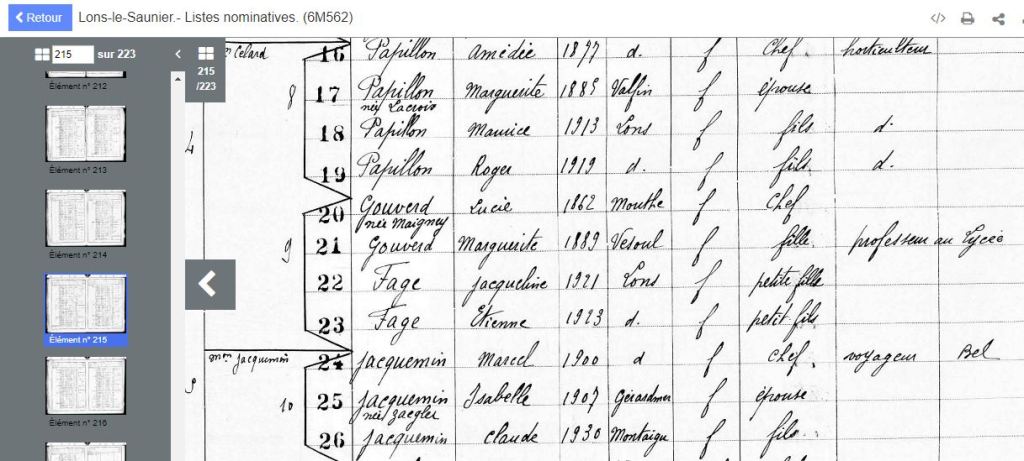 Retour Lons-le-Saunier.- Listes nominatives. (6M562)
215 sur 223
215
/223
Élément n° 212
Élément n° 213
Élément n° 214
Élément n° 215
Élément n° 216
on Celard
16 Papillon Amédée 1877 d. f Chef horticulteur
4 8 17 Papillon Marguerite 1885 Valfin f épouse
née Lacroix
18 Papillon Maurice 1913 Lons f fils d.
19 Papillon Roger 1919 d. f fils d.
20 Gouverd Lucie 1862 Mouthe f Chef
née Maigney
9 21 Gouverd Marguerite 1889 Vesoul f fille professeur au Lycée
22 Fage jacqueline 1921 Lons f petite fille
23 Fage Etienne 1923 d. f petit fils
mon Jacquemin
24 jacquemin Marcel 1900 d f Chef voyageur Bel
5 10 25 jacquemin Isabelle 1907 Gérardmer f épouse
née Zaegler
26 jacquemin claude 1930 Montaigu f fils